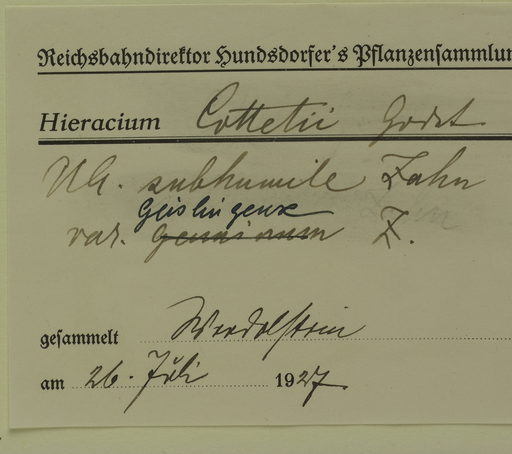 Reichsbahndirektor Hundsdorfer's Pflanzensammlun
Hieracium Cottetii Godet
Ug. subhumile Zahn
Geislingense
var. Z.
gesammelt
am 26. Juli 1927.